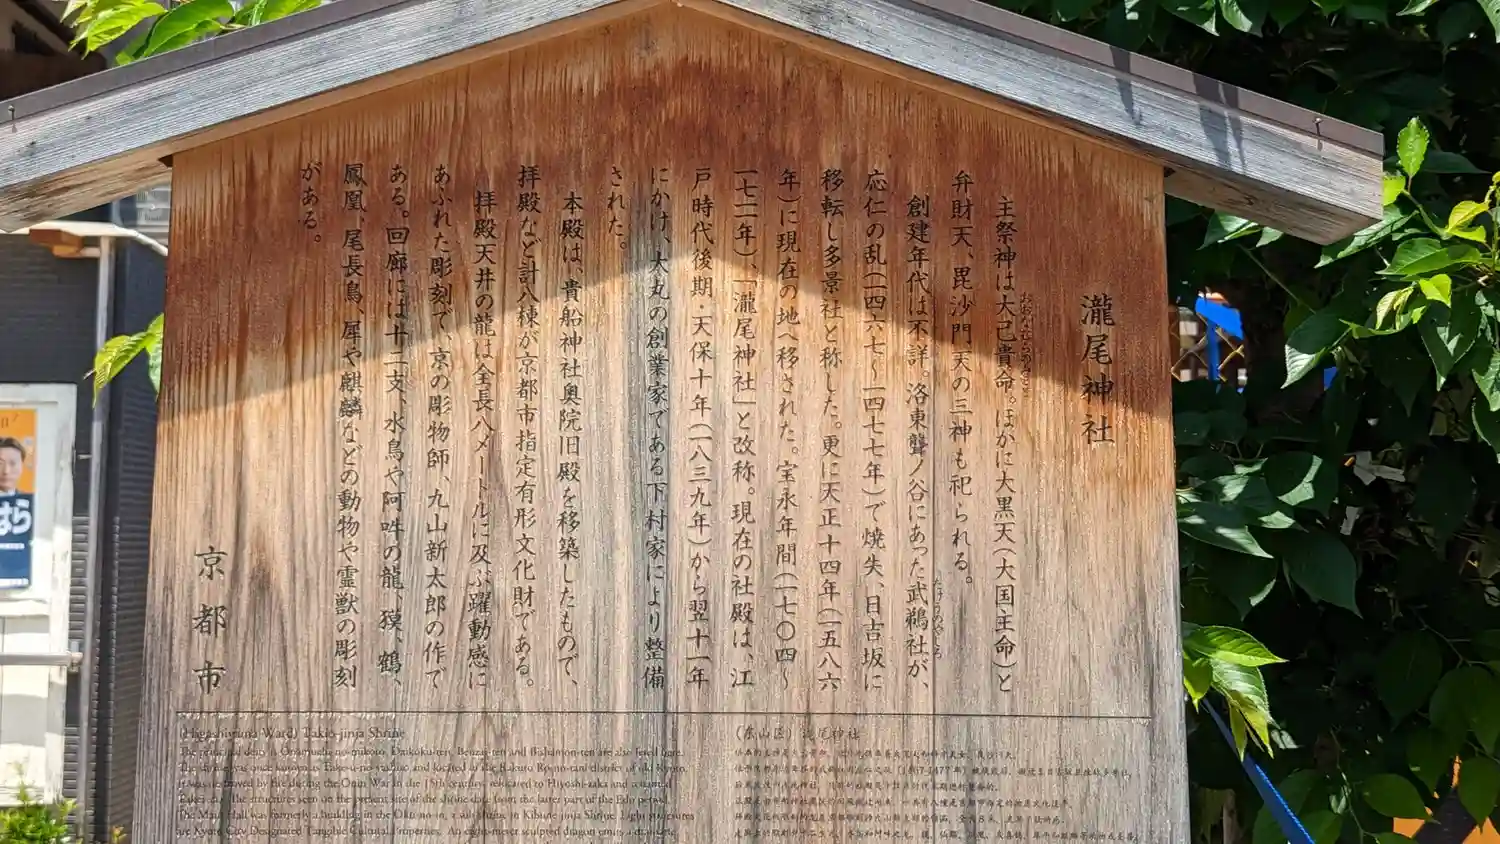 瀧尾神社
主祭神は大己貴命。ほかに大黒天(大国主命)と
弁財天、毘沙門天の三神も祀られる。
創建年代は不詳。洛東聾ノ谷にあった武鵜社が、
応仁の乱(一四六七〜一四七七年)で焼失、日吉坂に
移転し多景社と称した。更に天正十四年(一五八六
年)に現在の地へ移された。宝永年間(一七〇四〜
一七一一年)、「瀧尾神社」と改称。現在の社殿は、江
戸時代後期・天保十年(一八三九年)から翌十一年
にかけ、大丸の創業家である下村家により整備
された。
本殿は、貴船神社奥院旧殿を移築したもので、
拝殿など計八棟が京都市指定有形文化財である。
拝殿天井の龍は全長八メートルに及ぶ躍動感に
あふれた彫刻で、京の彫物師、九山新太郎の作で
ある。回廊には十二支、水鳥や阿吽の龍、獏、鶴、
鳳凰、尾長鳥、犀や麒麟などの動物や霊獣の彫刻
がある。
京都市
(Higashiyama Ward) Takio-jinja Shrine
The principal deity is Onamuchi-no-mikoto. Daikoku-ten, Benzai-ten and Bishamon-ten are also deified here.
The shrine was once known as Take-u-no-yashiro and located in the Rakuto Ro-no-tani district of old Kyoto.
It was destroyed by fire during the Onin War in the 15th century, relocated to Hiyoshi-zaka and renamed
Takei-sha. The structures seen on the present site of the shrine date from the latter part of the Edo period.
The Main Hall was formerly a building in the Oku-no-in, a sub shrine in Kibune-jinja Shrine. Eight structures
are Kyoto City Designated Tangible Cultural Properties. An eight-meter sculpted dragon
(东山区) 泷尾神社
はら